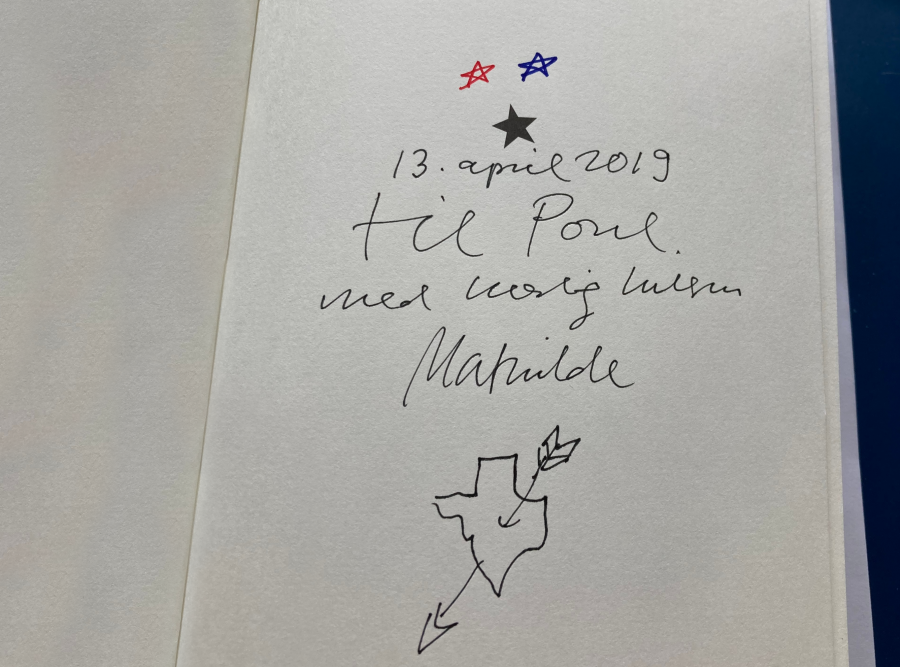 13. april 2019
til Poul.
med kærlig hilsen
Mathilde